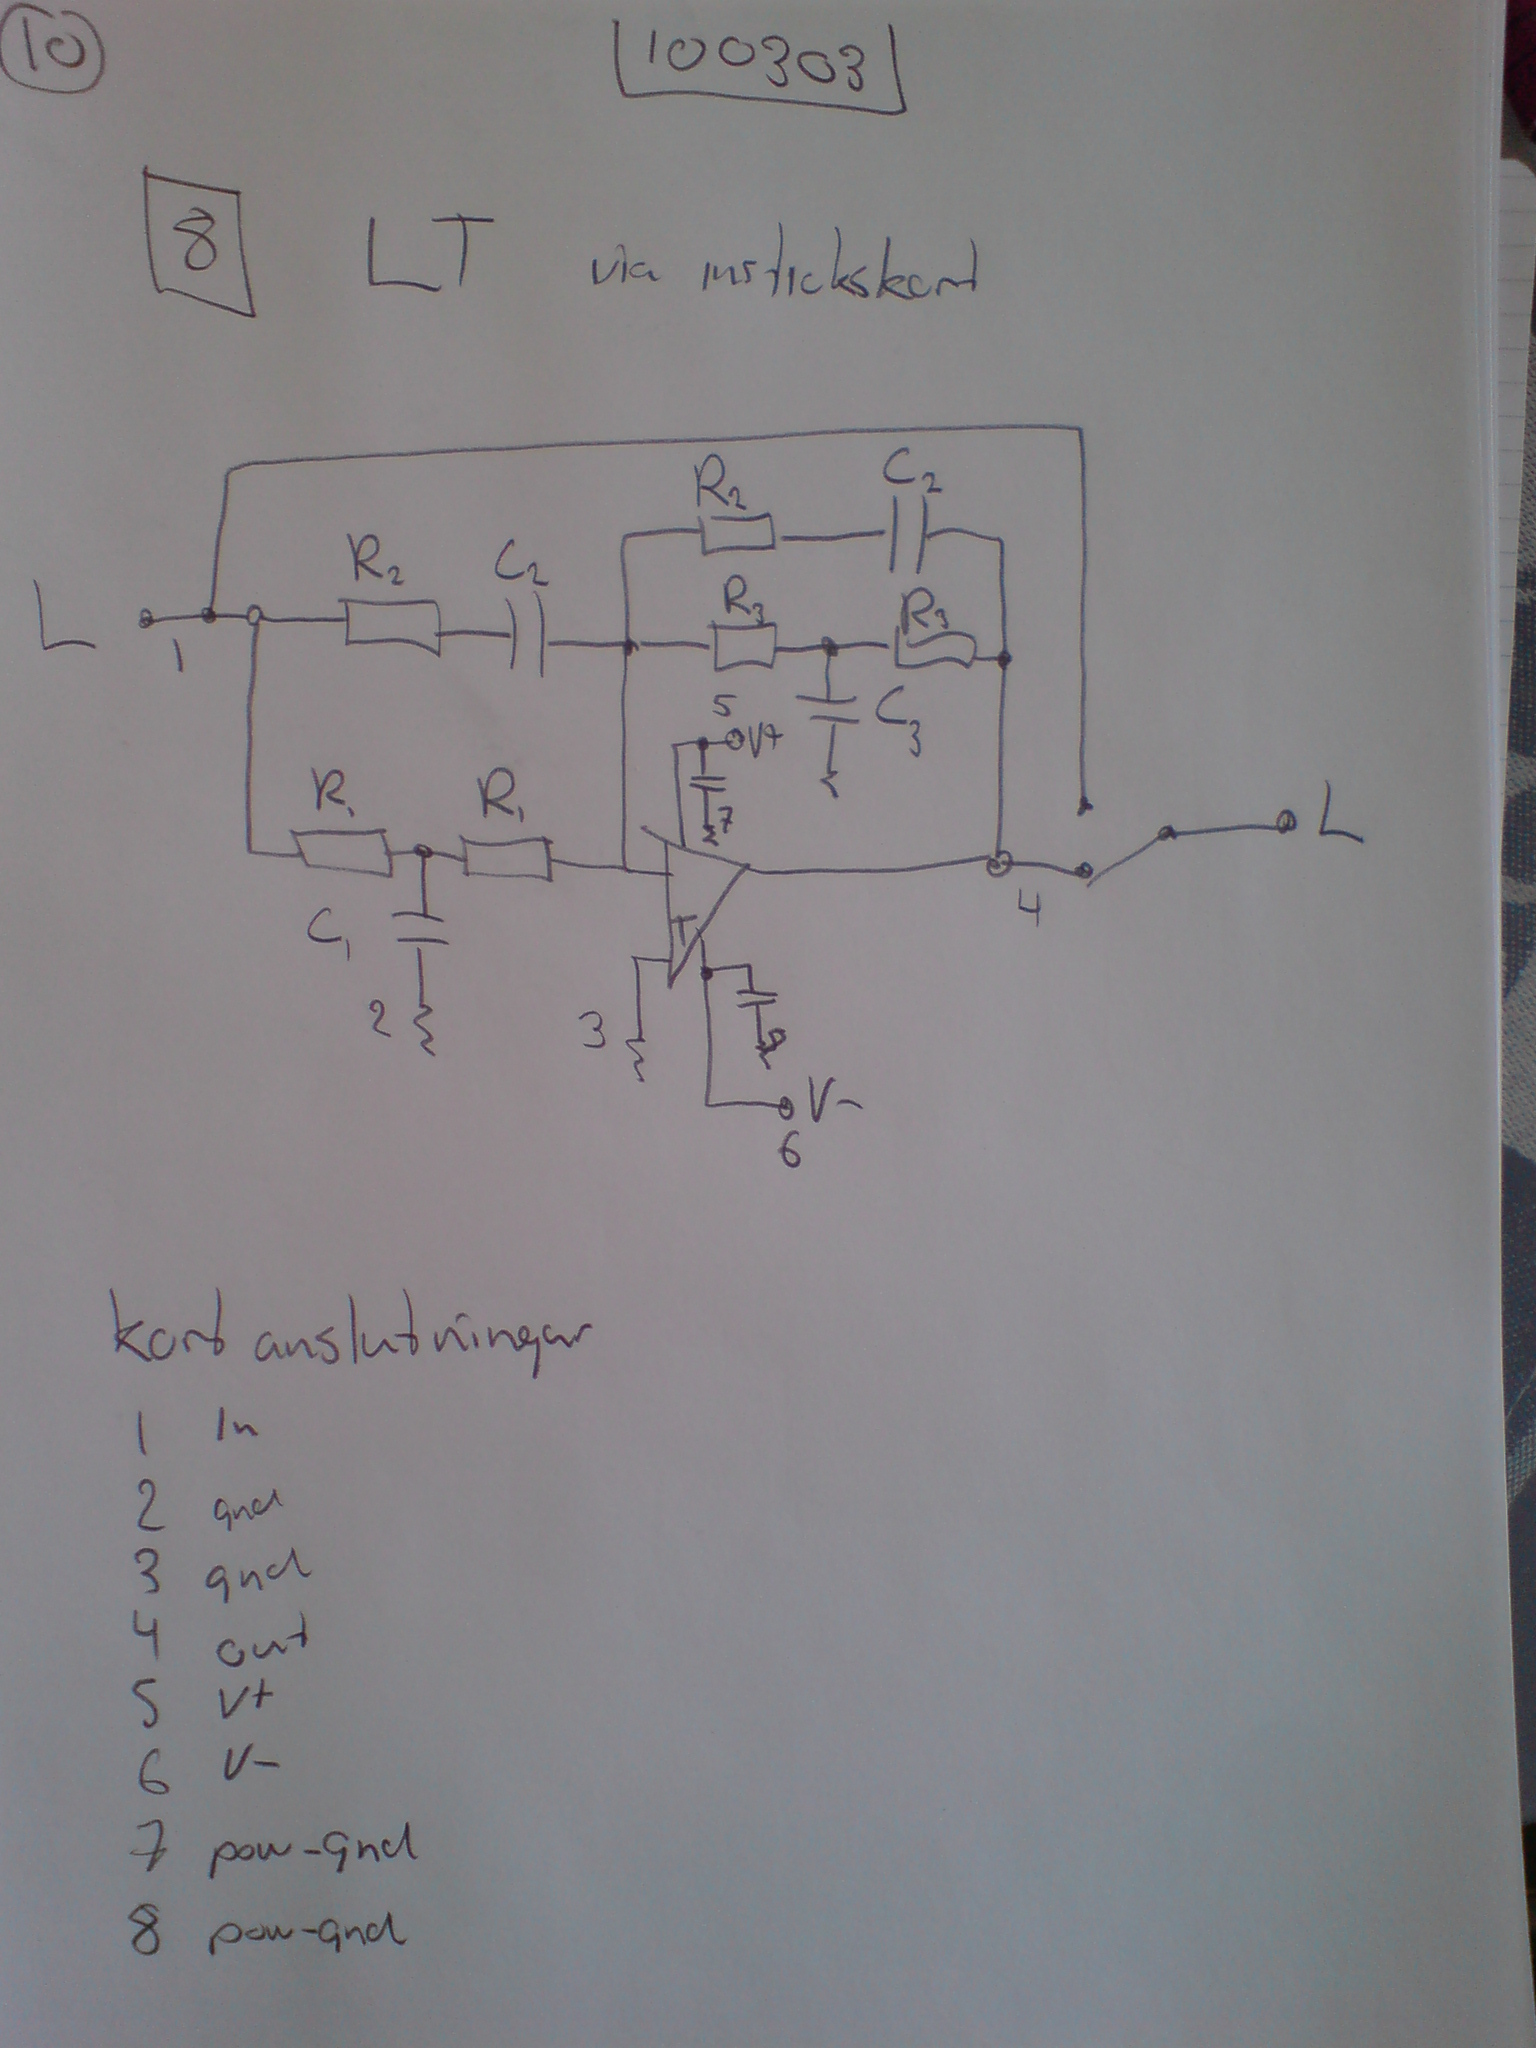 10
100303
8 LT via instickskort
R2 C2
R2 C2
R3 R3
L 1
5 V+
C3
7
R1 R1
L
4
C1
2
3
8
V-
6
kortanslutningar
1 In
2 gnd
3 gnd
4 out
5 V+
6 V-
7 pow-gnd
8 pow-gnd